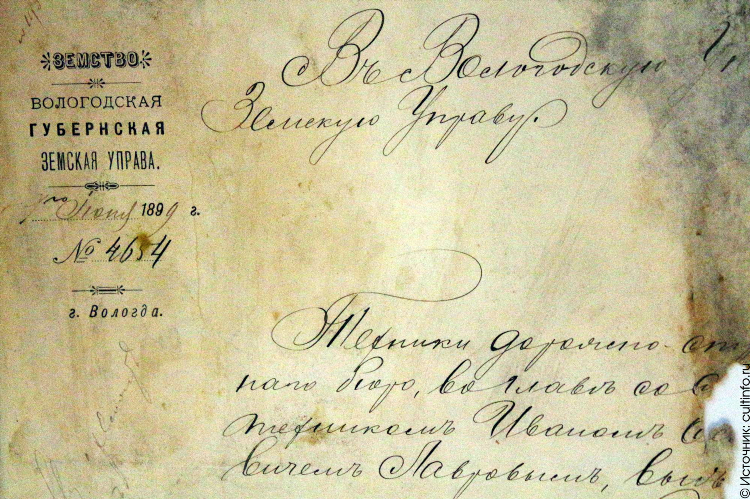 ЗЕМСТВО
ВОЛОГОДСКАЯ
ГУБЕРНСКАЯ
ЗЕМСКАЯ УПРАВА.
Июня 1899 г.
№ 4654
г. Вологда.
Въ Вологодскую
Земскую Управу.
Техники дорожно-
наго бюро, во главѣ со
техникомъ Иваномъ
вичемъ Лавровымъ,
© Источник: cultinfo.ru